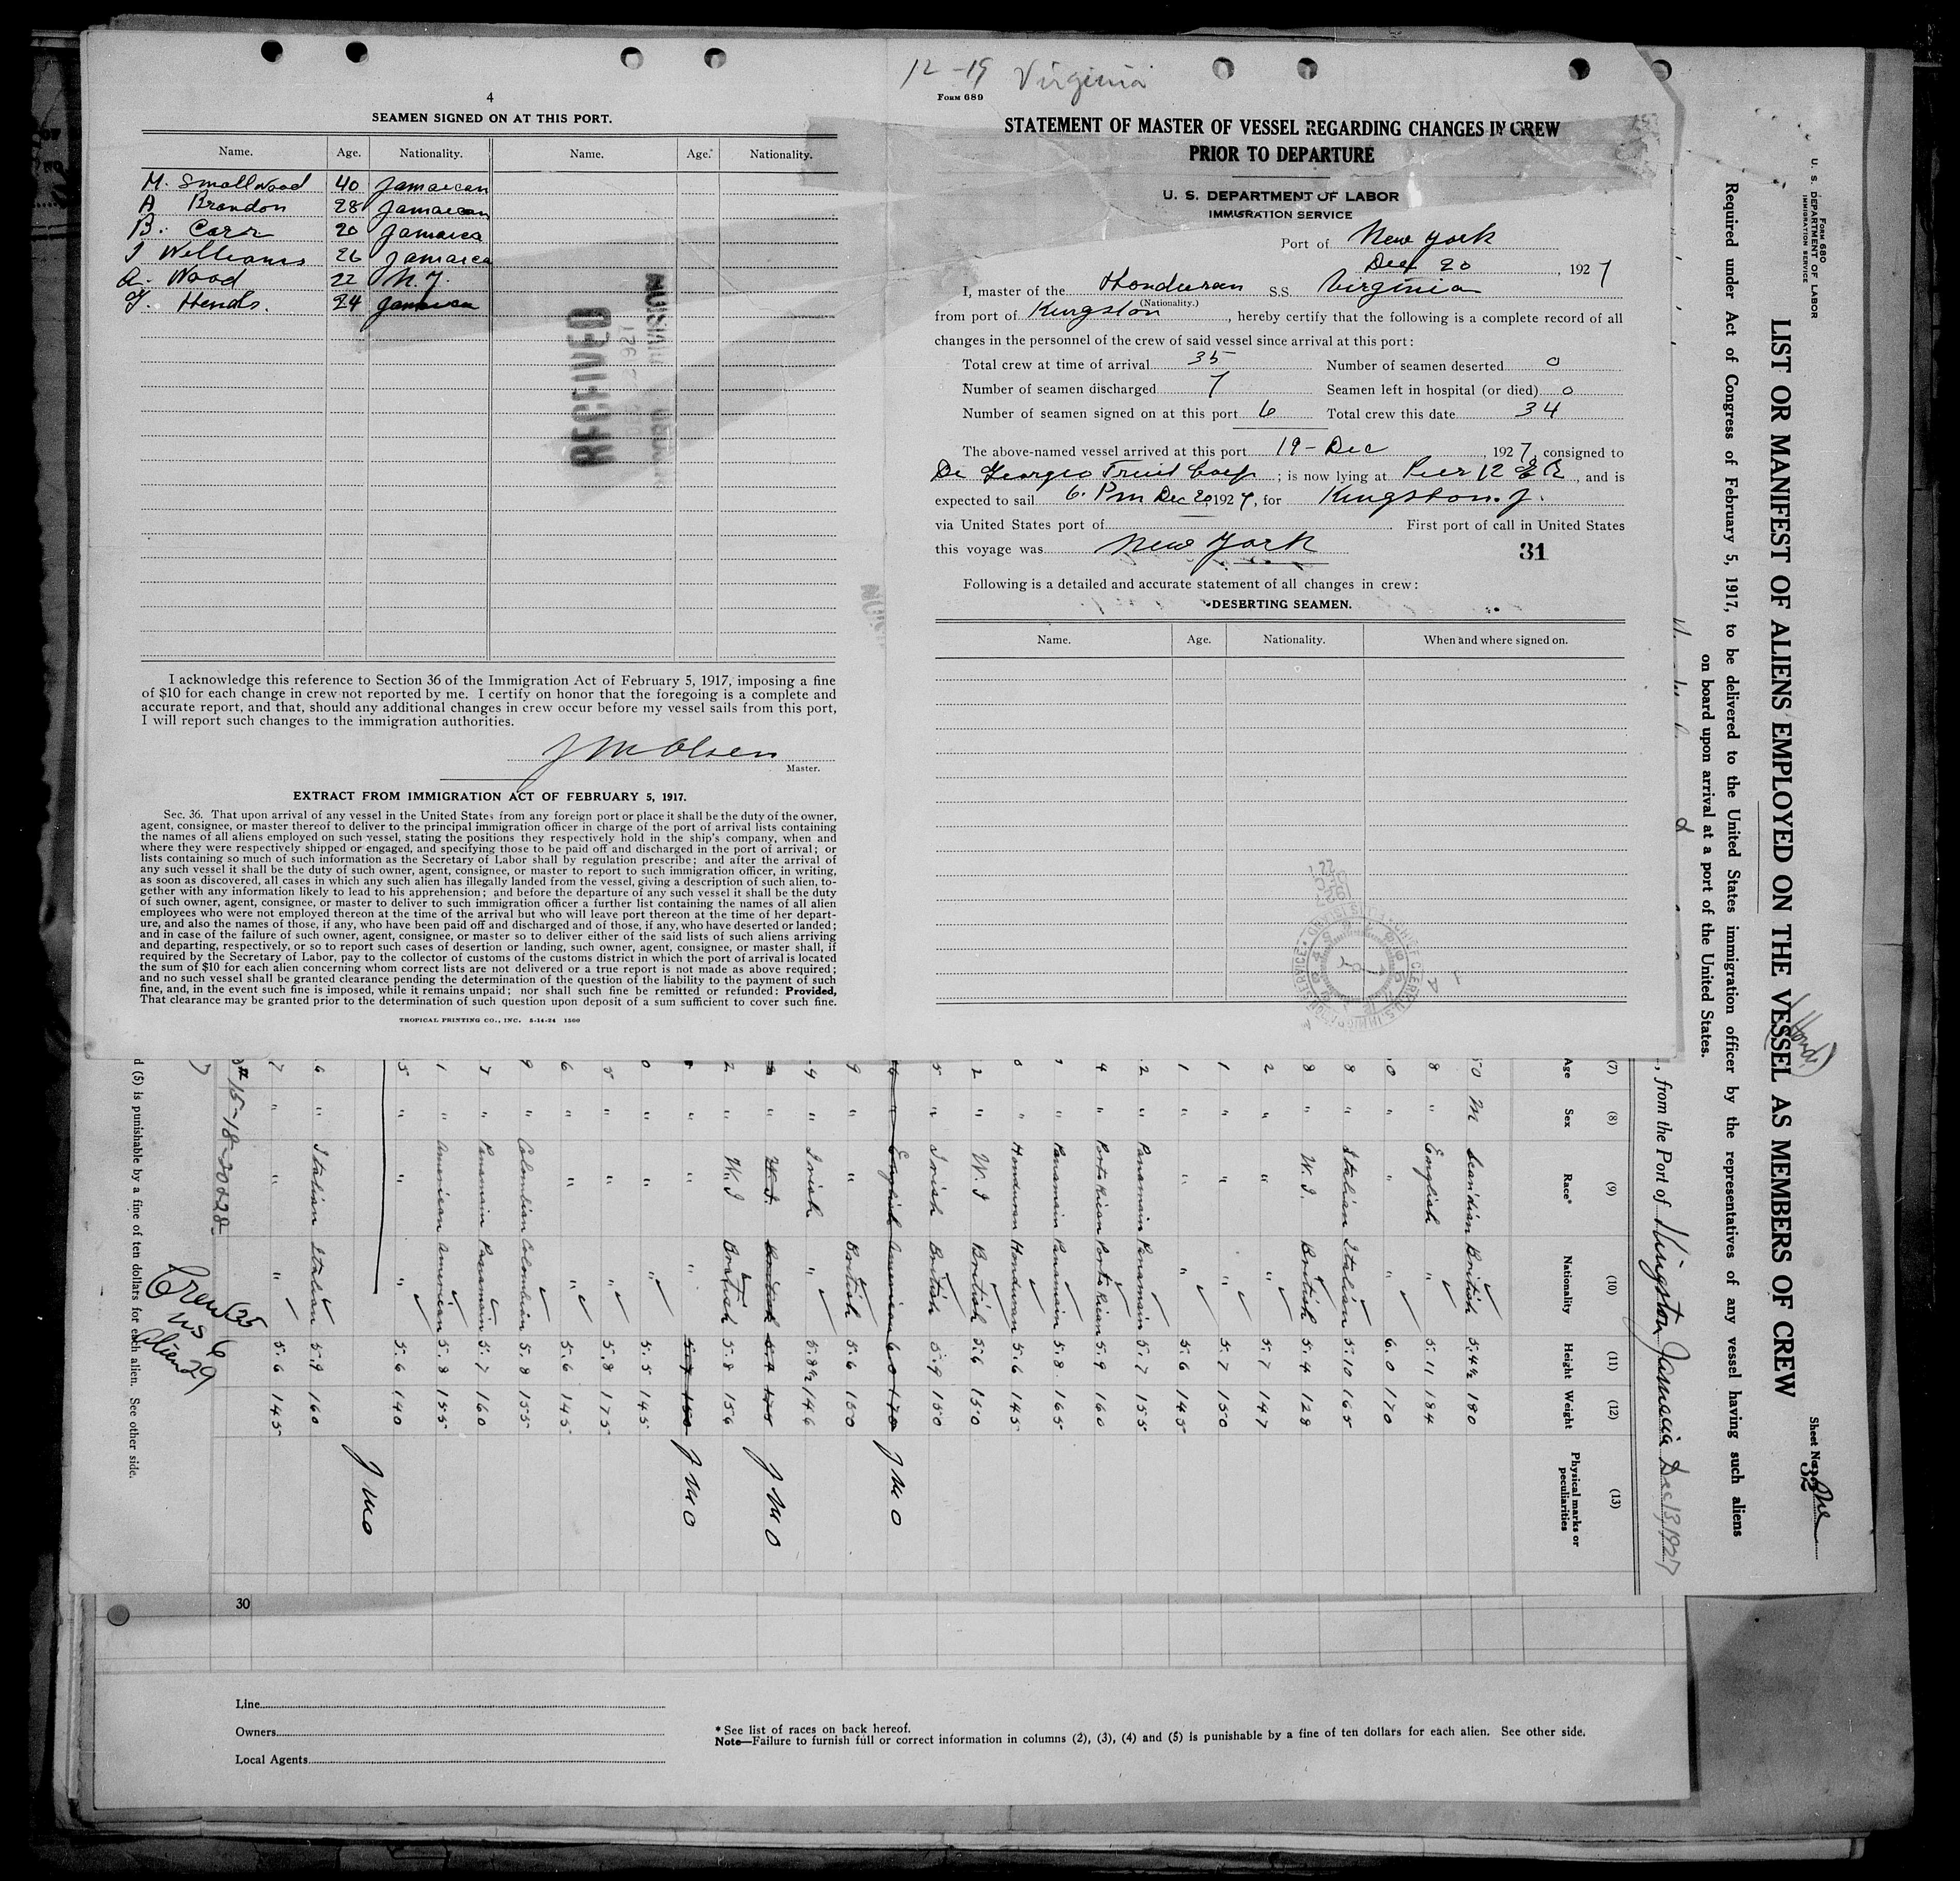 4
SEAMEN SIGNED ON AT THIS PORT.
Name. Age. Nationality. Name. Age. Nationality.
M. Smallwood 40 Jamaican
A Brandon 28 Jamaican
B. Carr 20 Jamaica
J Williams 26 Jamaica
A. Wood 22 N.Y.
Y. Hends. 24 Jamaica
RECEIVED
I acknowledge this reference to Section 36 of the Immigration Act of February 5, 1917, imposing a fine
of $10 for each change in crew not reported by me. I certify on honor that the foregoing is a complete and
accurate report, and that, should any additional changes in crew occur before my vessel sails from this port,
I will report such changes to the immigration authorities.
J M Olsen
Master.
EXTRACT FROM IMMIGRATION ACT OF FEBRUARY 5, 1917.
Sec. 36. That upon arrival of any vessel in the United States from any foreign port or place it shall be the duty of the owner,
agent, consignee, or master thereof to deliver to the principal immigration officer in charge of the port of arrival lists containing
the names of all aliens employed on such vessel, stating the positions they respectively hold in the ship's company, when and
where they were respectively shipped or engaged, and specifying those to be paid off and discharged in the port of arrival; or
lists containing so much of such information as the Secretary of Labor shall by regulation prescribe; and after the arrival of
any such vessel it shall be the duty of such owner, agent, consignee, or master to report to such immigration officer, in writing,
as soon as discovered, all cases in which any such alien has illegally landed from the vessel, giving a description of such alien, to-
gether with any information likely to lead to his apprehension; and before the departure of any such vessel it shall be the duty
of such owner, agent, consignee, or master to deliver to such immigration officer a further list containing the names of all alien
employees who were not employed thereon at the time of the arrival but who will leave port thereon at the time of her depart-
ure, and also the names of those, if any, who have been paid off and discharged and of those, if any, who have deserted or landed;
and in case of the failure of such owner, agent, consignee, or master so to deliver either of the said lists of such aliens arriving
and departing, respectively, or so to report such cases of desertion or landing, such owner, agent, consignee, or master shall, if
required by the Secretary of Labor, pay to the collector of customs of the customs district in which the port of arrival is located
the sum of $10 for each alien concerning whom correct lists are not delivered or a true report is not made as above required;
and no such vessel shall be granted clearance pending the determination of the question of the liability to the payment of such
fine, and, in the event such fine is imposed, while it remains unpaid; nor shall such fine be remitted or refunded: Provided,
That clearance may be granted prior to the determination of such question upon deposit of a sum sufficient to cover such fine.
TROPICAL PRINTING CO., INC. 5-14-24 1500
12-19 Virginia
FORM 689
STATEMENT OF MASTER OF VESSEL REGARDING CHANGES IN CREW
PRIOR TO DEPARTURE
U. S. DEPARTMENT OF LABOR
IMMIGRATION SERVICE
Port of New York
Dec 20, 1927
I, master of the Honduran S.S. Virginia
(Nationality.)
from port of Kingston, hereby certify that the following is a complete record of all
changes in the personnel of the crew of said vessel since arrival at this port:
Total crew at time of arrival 35 Number of seamen deserted 0
Number of seamen discharged 7 Seamen left in hospital (or died) 0
Number of seamen signed on at this port 6 Total crew this date 34
The above-named vessel arrived at this port 19 - Dec, 1927, consigned to
Di Georgeo Fruit Corp; is now lying at Pier 12 E R, and is
expected to sail 6. Pm Dec 20, 1927, for Kingston. J.
via United States port of First port of call in United States
this voyage was New York 31
Following is a detailed and accurate statement of all changes in crew:
DESERTING SEAMEN.
Name. Age. Nationality. When and where signed on.
FORM 680
U. S. DEPARTMENT OF LABOR
IMMIGRATION SERVICE
Sheet No. One
32
LIST OR MANIFEST OF ALIENS EMPLOYED ON THE VESSEL AS MEMBERS OF CREW
Required under Act of Congress of February 5, 1917, to be delivered to the United States immigration officer by the representatives of any vessel having such aliens
on board upon arrival at a port of the United States.
, from the Port of Kingston Jamaica Dec 13, 1927
(7) (8) (9) (10) (11) (12) (13)
Age Sex Race* Nationality Height Weight Physical marks or peculiarities
0 M Scandian British 5.4½ 190
8 " English " 5.11 184
0 " " " 6.0 170
8 " Italian Italian 5.10 165
8 " W.I. British 5.4 128
2 " " " 5.7 147
1 " " " 5.7 150
1 " " " 5.6 145
2 " Panamain Panamain 5.7 155
4 " Porto Rican Porto Rican 5.9 160
" Panamain Panamain 5.8 165
" Honduran Honduran 5.6 145
2 " W.I British 5.6 150
5 " Irish British 5.9 150
" English American 6.0 170 J M O
9 " " British 5.6 150
4 " Irish " 5.8½ 146
" W.I. British 5.9 175 J M O
2 " W.I British 5.8 156
" " " 5.7 150 J M O
0 " " " 5.5 145
5 " " " 5.8 175
6 " " " 5.6 145
9 " Colombian Colombian 5.8 155
7 " Panamain Panamain 5.7 160
1 " American American 5.8 155
5 " " " 5.6 140
J M O
6 " Italian Italian 5.9 160
7 " " " 5.6 145
15-18-20 228
Crew 35
US 6
Alien 29
(5) is punishable by a fine of ten dollars for each alien. See other side.
30
Line
Owners
Local Agents
* See list of races on back hereof.
Note—Failure to furnish full or correct information in columns (2), (3), (4) and (5) is punishable by a fine of ten dollars for each alien. See other side.